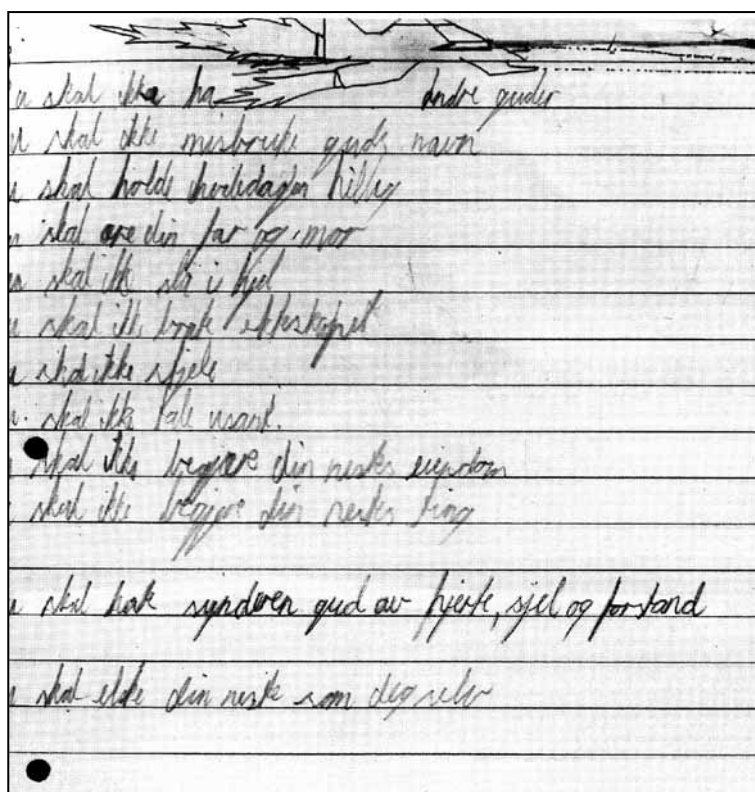 u skal ikke ha andre guder
u skal ikke misbruke guds navn
u skal holde hviledagen hillig
u skal ære din far og mor
u skal ikke slå i hjel
u skal ikke bryte ekteskapet
u skal ikke stjele
u skal ikke tale usant.
skal ikke begjære din nestes eiendom
skal ikke begjære din nestes ting
u skal hate synderen gud av hjerte, sjel og forstand
u skal elske din neste som deg selv